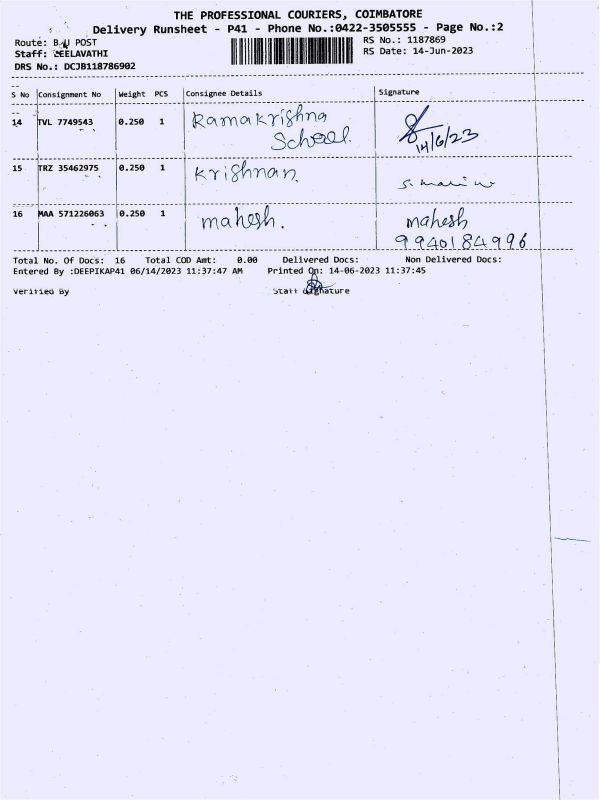 THE PROFESSIONAL COURIERS, COIMBATORE
Delivery Runsheet - P41 - Phone No.:0422-3505555 - Page No.:2
Route: POST
RS No.: 1187869
Staff: LEELAVATHI
RS Date: 14-Jun-2023
DRS No.: DCJB118786902
S No Consignment No Weight PCS Consignee Details Signature
14 TVL 7749543 0.250 1 Ramakrishna
School. 14/6/23
15 TRZ 35462975 0.250 1 Krishnan.
16 MAA 571226063 0.250 1 mahesh. mahesh
9940184996
Total No. Of Docs: 16 Total COD Amt: 0.00 Delivered Docs: Non Delivered Docs:
Entered By :DEEPIKAP41 06/14/2023 11:37:47 AM Printed On: 14-06-2023 11:37:45
Verified By Staff Signature